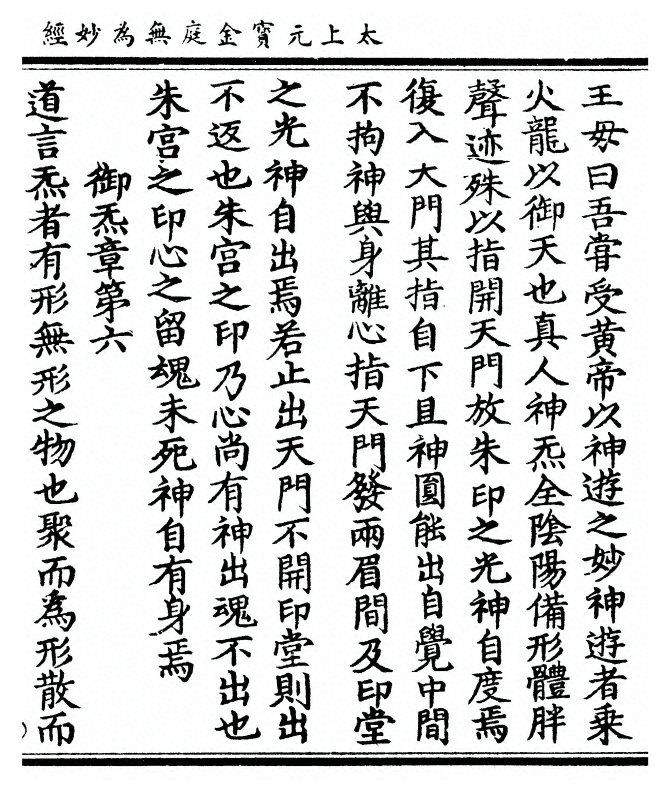 太上元寳金庭無為妙經
王毋曰吾甞受黄帝以神遊之妙神遊者乗
火龍以御天也真人神炁全陰陽備形體胖
聲迹殊以指開天門放朱印之光神自度焉
復入大門其指自下且神圓能出自覺中間
不拘神與身離心指天門發兩眉間及印堂
之光神自出焉若止出天門不開印堂則出
不返也朱宫之印乃心尚有神出魂不出也
朱宫之印心之留魂未死神自有身焉
御炁章第六
道言炁者有形無形之物也聚而為形散而